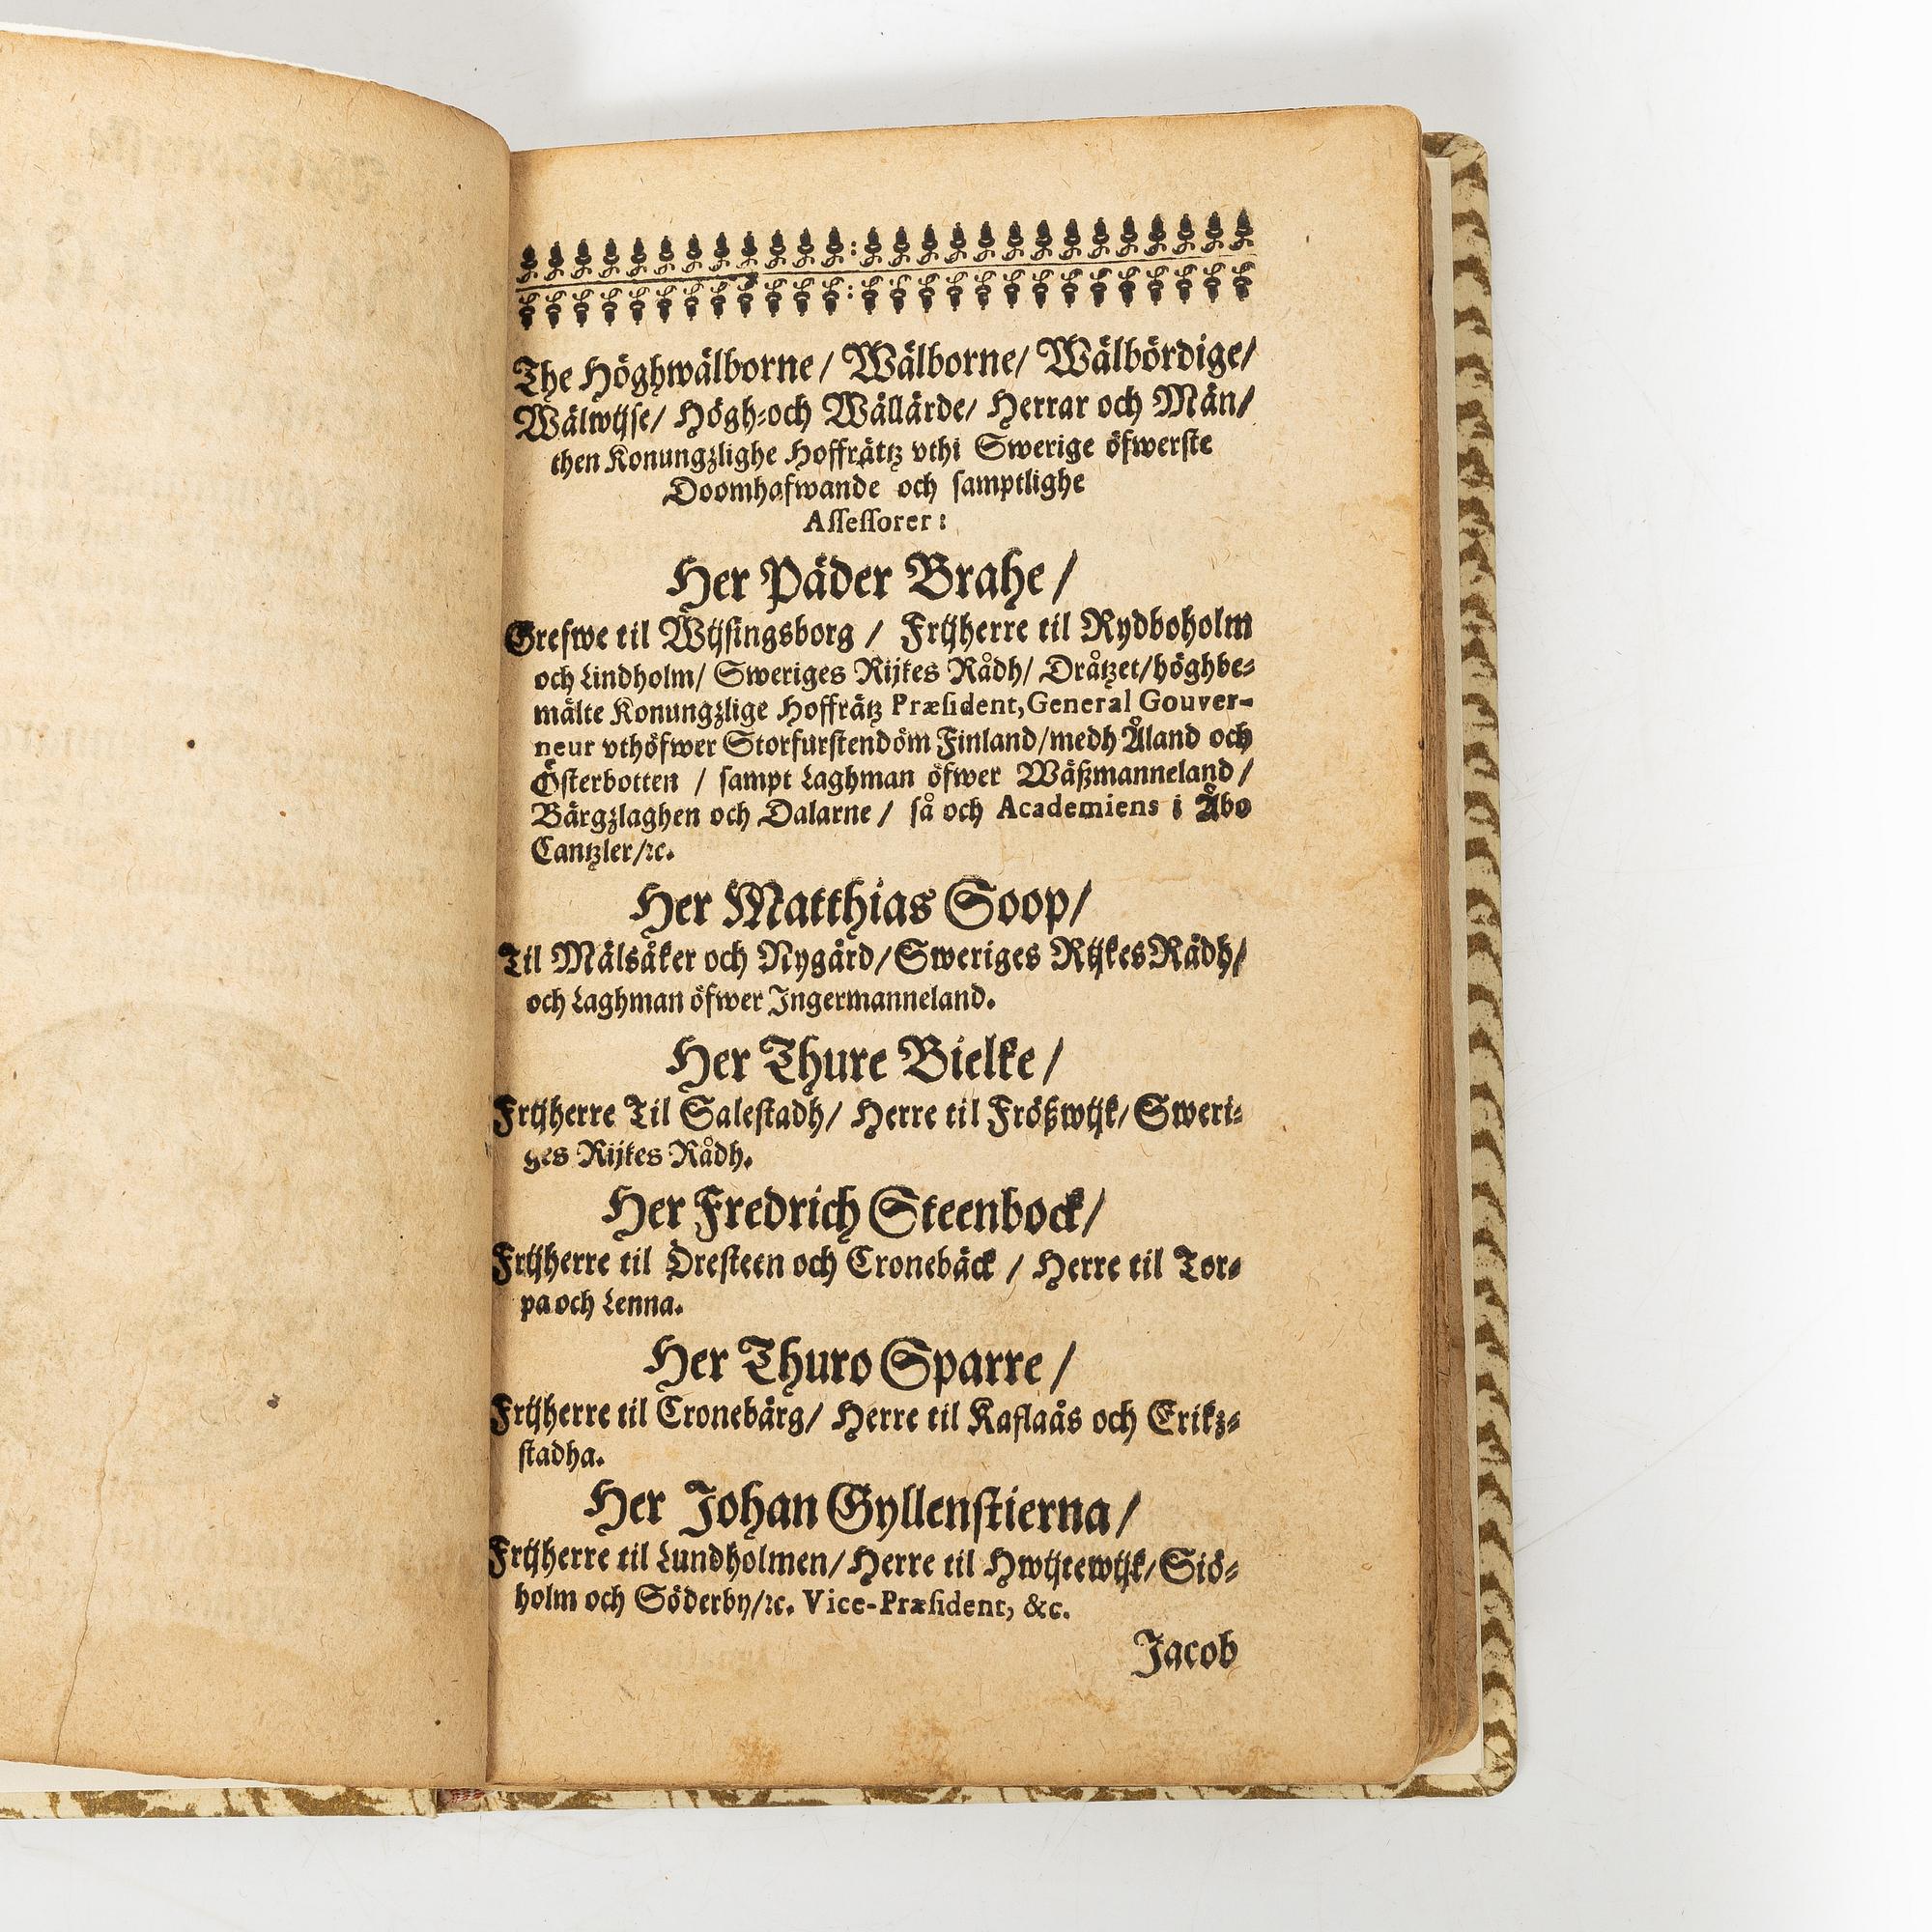 The Höghwälborne/ Wälborne/ Wälbördige/
Wälwijse/ Högh-och Wällärde/ Herrar och Män/
then Konungzlighe Hoffrättz vthi Swerige öfwerste
Doomhafwande och samptlighe
Assessorer:
Her Päder Brahe/
Grefwe til Wijsingsborg / Frijherre til Rydboholm
och Lindholm/ Sweriges Rijkes Rådh/ Dråtzet/höghbe-
mälte Konungzlige Hoffrätz Præsident, General Gouver-
neur vthöfwer Storfurstendöm Finland/medh Åland och
Österbotten / sampt Laghman öfwer Wäßmanneland/
Bärgzlaghen och Dalarne/ så och Academiens i Åbo
Cantzler/ꝛc.
Her Matthias Soop/
Til Mälsåker och Nygård/Sweriges Rijkes Rådh/
och Laghman öfwer Ingermanneland.
Her Thure Bielke/
Frijherre Til Salestadh/ Herre til Frößwijk/ Sweri-
ges Rijkes Rådh.
Her Fredrich Steenbock/
Frijherre til Öresteen och Cronebäck / Herre til Tor-
pa och Lenna.
Her Thuro Sparre/
Frijherre til Cronebärg/ Herre til Kaflaås och Erikz-
stadha.
Her Johan Gyllenstierna/
Frijherre til Lundholmen/ Herre til Hwijtewijk/ Siö-
holm och Söderby/ꝛc. Vice-Præsident, &c.
Jacob